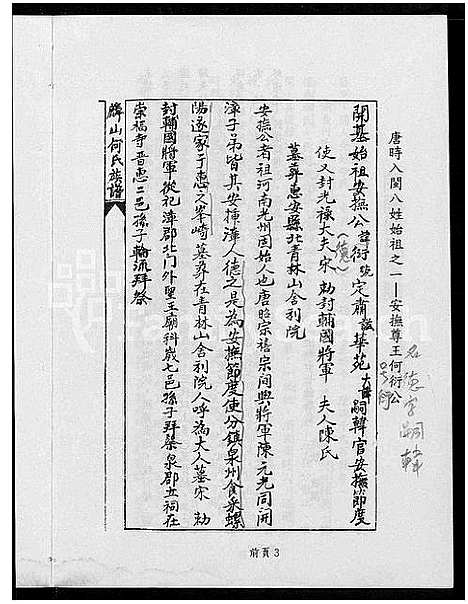 唐時入閩八姓始祖之一——安撫尊王何衍公
名德字嗣韓
開基始祖安撫公諱衍號定肅謚華苑大諱嗣韓官安撫節度
(德)
使又封光祿大夫宋 勅封輔國將軍 夫人陳氏
墓葬惠安縣北青林山舍利院
安撫公者祖河南光州固始人也唐昭宗禧宗間與將軍陳元光同開
漳子弟皆其安揮漳人德之是為安撫節度使分鎮泉州食采螺
陽遂家于惠之峯崎墓葬在青林山舍利院人呼為大人墓宋 勅
封輔國將軍從祀漳郡北門外聖王廟科歲七邑孫子拜祭泉郡立祠在
崇福寺晉惠二邑孫子輪流拜祭
麟山何氏族譜
前頁3